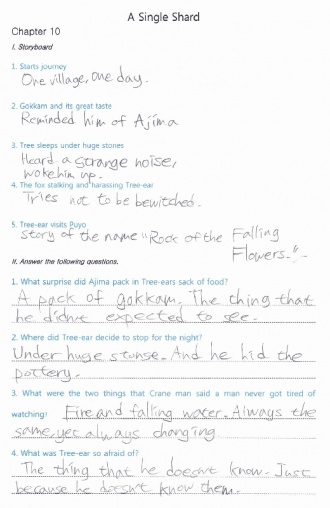 A Single Shard
Chapter 10
I. Storyboard
1. Starts journey
One village, One day.
2. Gokkam and its great taste
Reminded him of Ajima
3. Tree sleeps under huge stories
Heard a strange noise,
woke him up.
4. The fox stalking and harassing Tree-ear
Tries not to be bewitched.
5. Tree-ear visits Puyo
Story of the name "Rock of the Falling
Flowers."
II. Answer the following questions.
1. What surprise did Ajima pack in Tree-ears sack of food?
A pack of gokkam. The thing that
he didn't expected to see.
2. Where did Tree-ear decide to stop for the night?
Under huge stonse. And he hid the
pottery.
3. What were the two things that Crane man said a man never got tired of
watching? Fire and falling water. Always the
same, yet always changing
4. What was Tree-ear so afraid of?
The thing that he doesn't know. Just
because he doesn't know them.